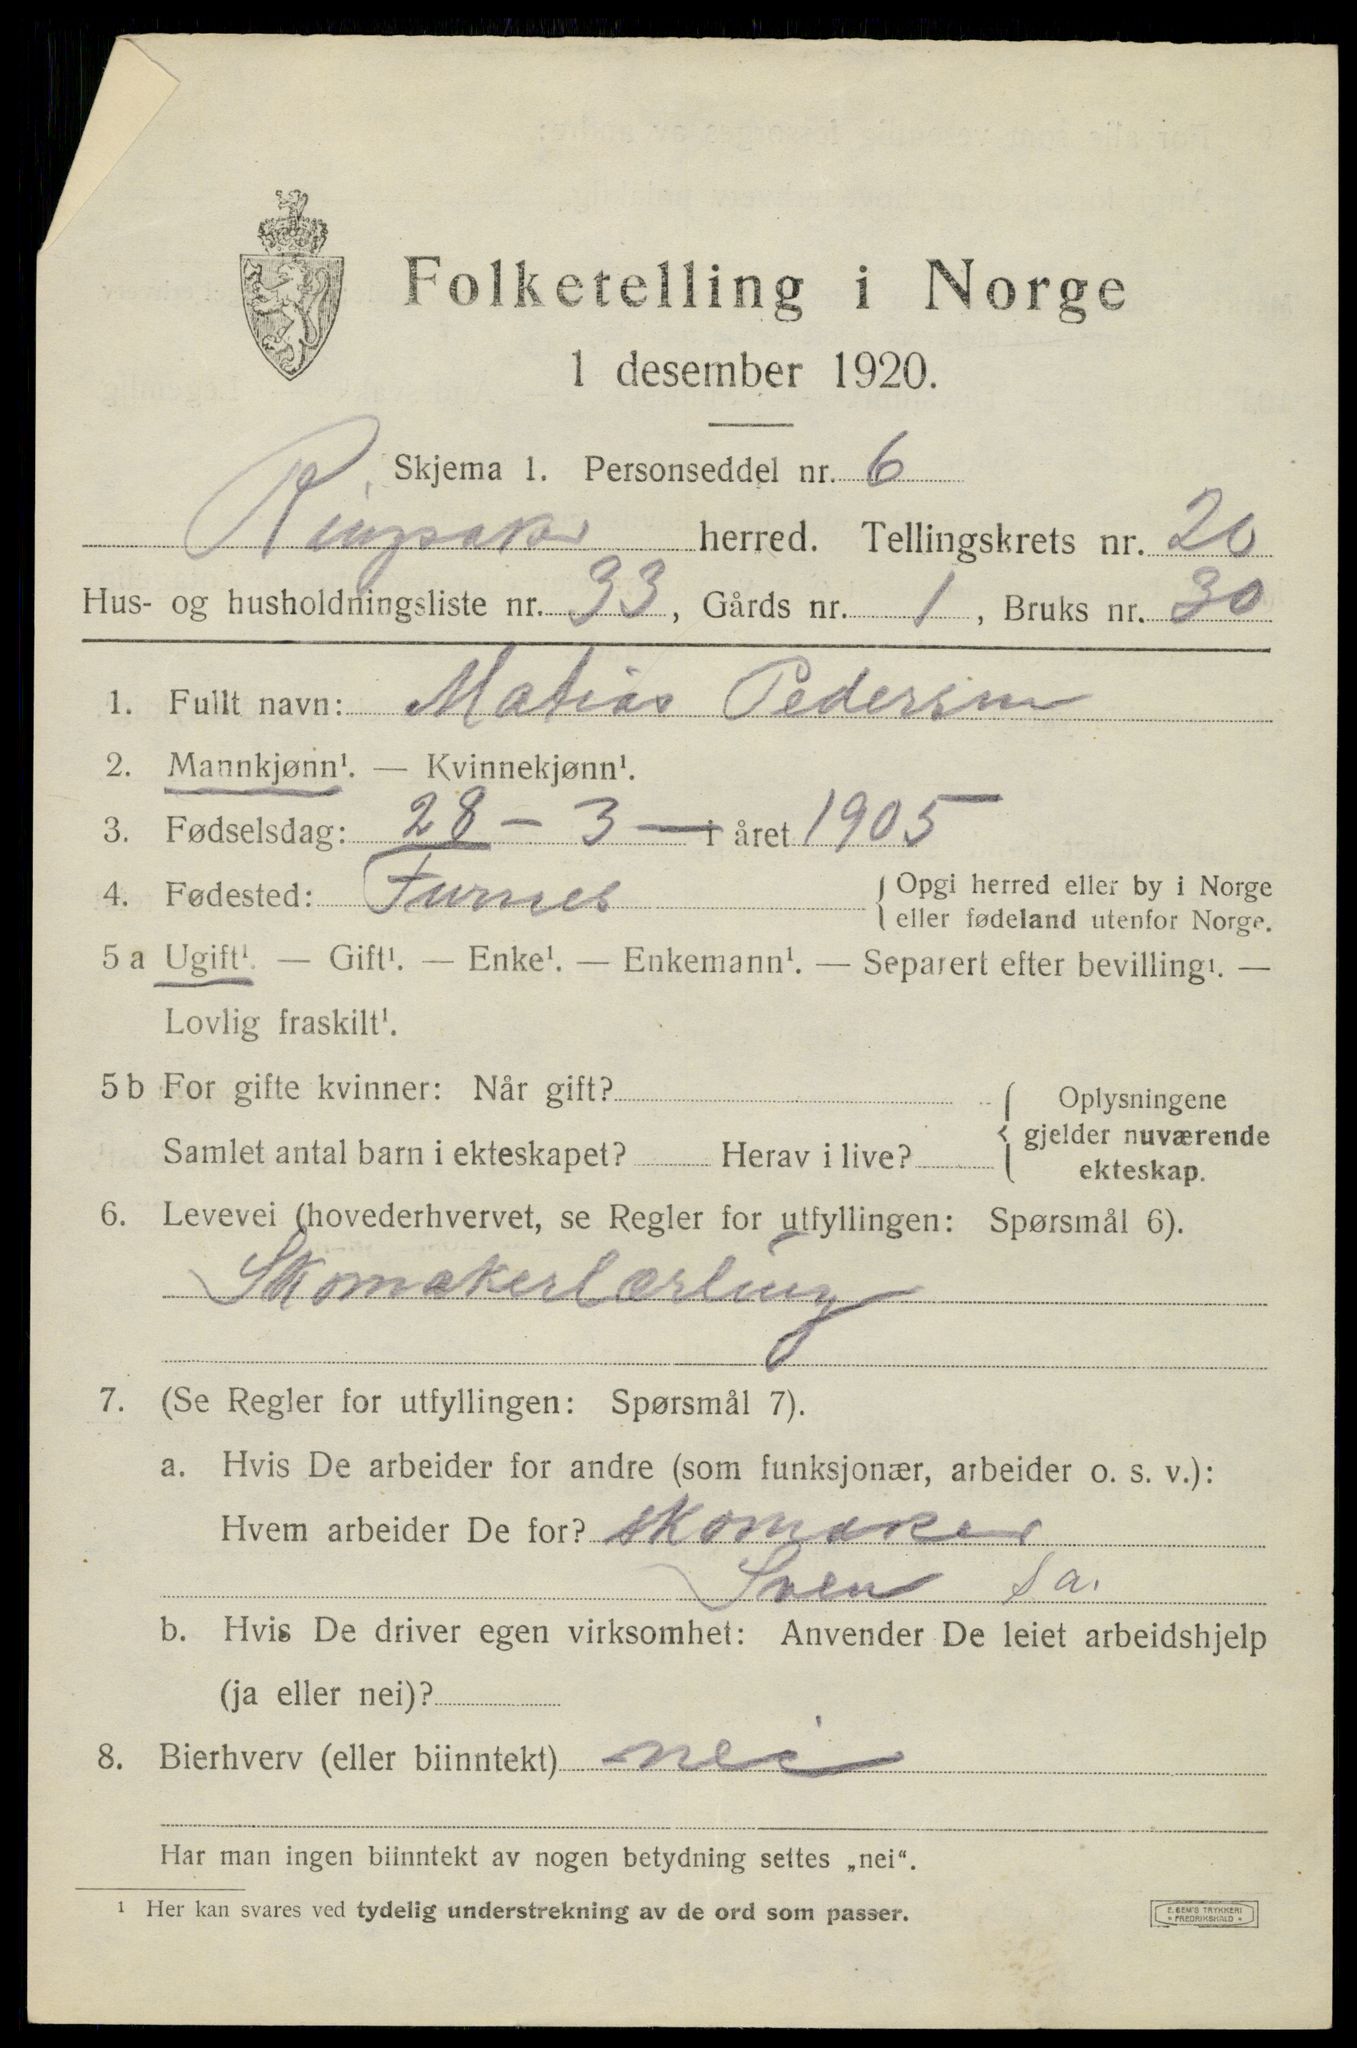 Folketelling i Norge
1 desember 1920.
Skjema 1. Personseddel nr. 6
Ringsaker herred. Tellingskrets nr. 20
Hus- og husholdningsliste nr. 33, Gårds nr. 1, Bruks nr. 30
1. Fullt navn: Matias Pedersen
2. Mannkjønn¹. — Kvinnekjønn¹.
3. Fødselsdag: 28 - 3 - i året 1905
4. Fødested: Furnes { Opgi herred eller by i Norge
eller fødeland utenfor Norge.
5 a Ugift¹. — Gift¹. — Enke¹. — Enkemann¹. — Separert efter bevilling¹. —
Lovlig fraskilt¹.
5 b For gifte kvinner: Når gift?
Samlet antal barn i ekteskapet? Herav i live?
{ Oplysningene
gjelder nuværende
ekteskap.
6. Levevei (hovederhvervet, se Regler for utfyllingen: Spørsmål 6).
Skomakerlærling
7. (Se Regler for utfyllingen: Spørsmål 7).
a. Hvis De arbeider for andre (som funksjonær, arbeider o. s. v.):
Hvem arbeider De for? skomaker
Sven
b. Hvis De driver egen virksomhet: Anvender De leiet arbeidshjelp
(ja eller nei)?
8. Bierhverv (eller biinntekt) nei
Har man ingen biinntekt av nogen betydning settes „nei“.
¹ Her kan svares ved tydelig understrekning av de ord som passer.
E. SEM'S TRYKKERI
• FREDRIKSHALD •